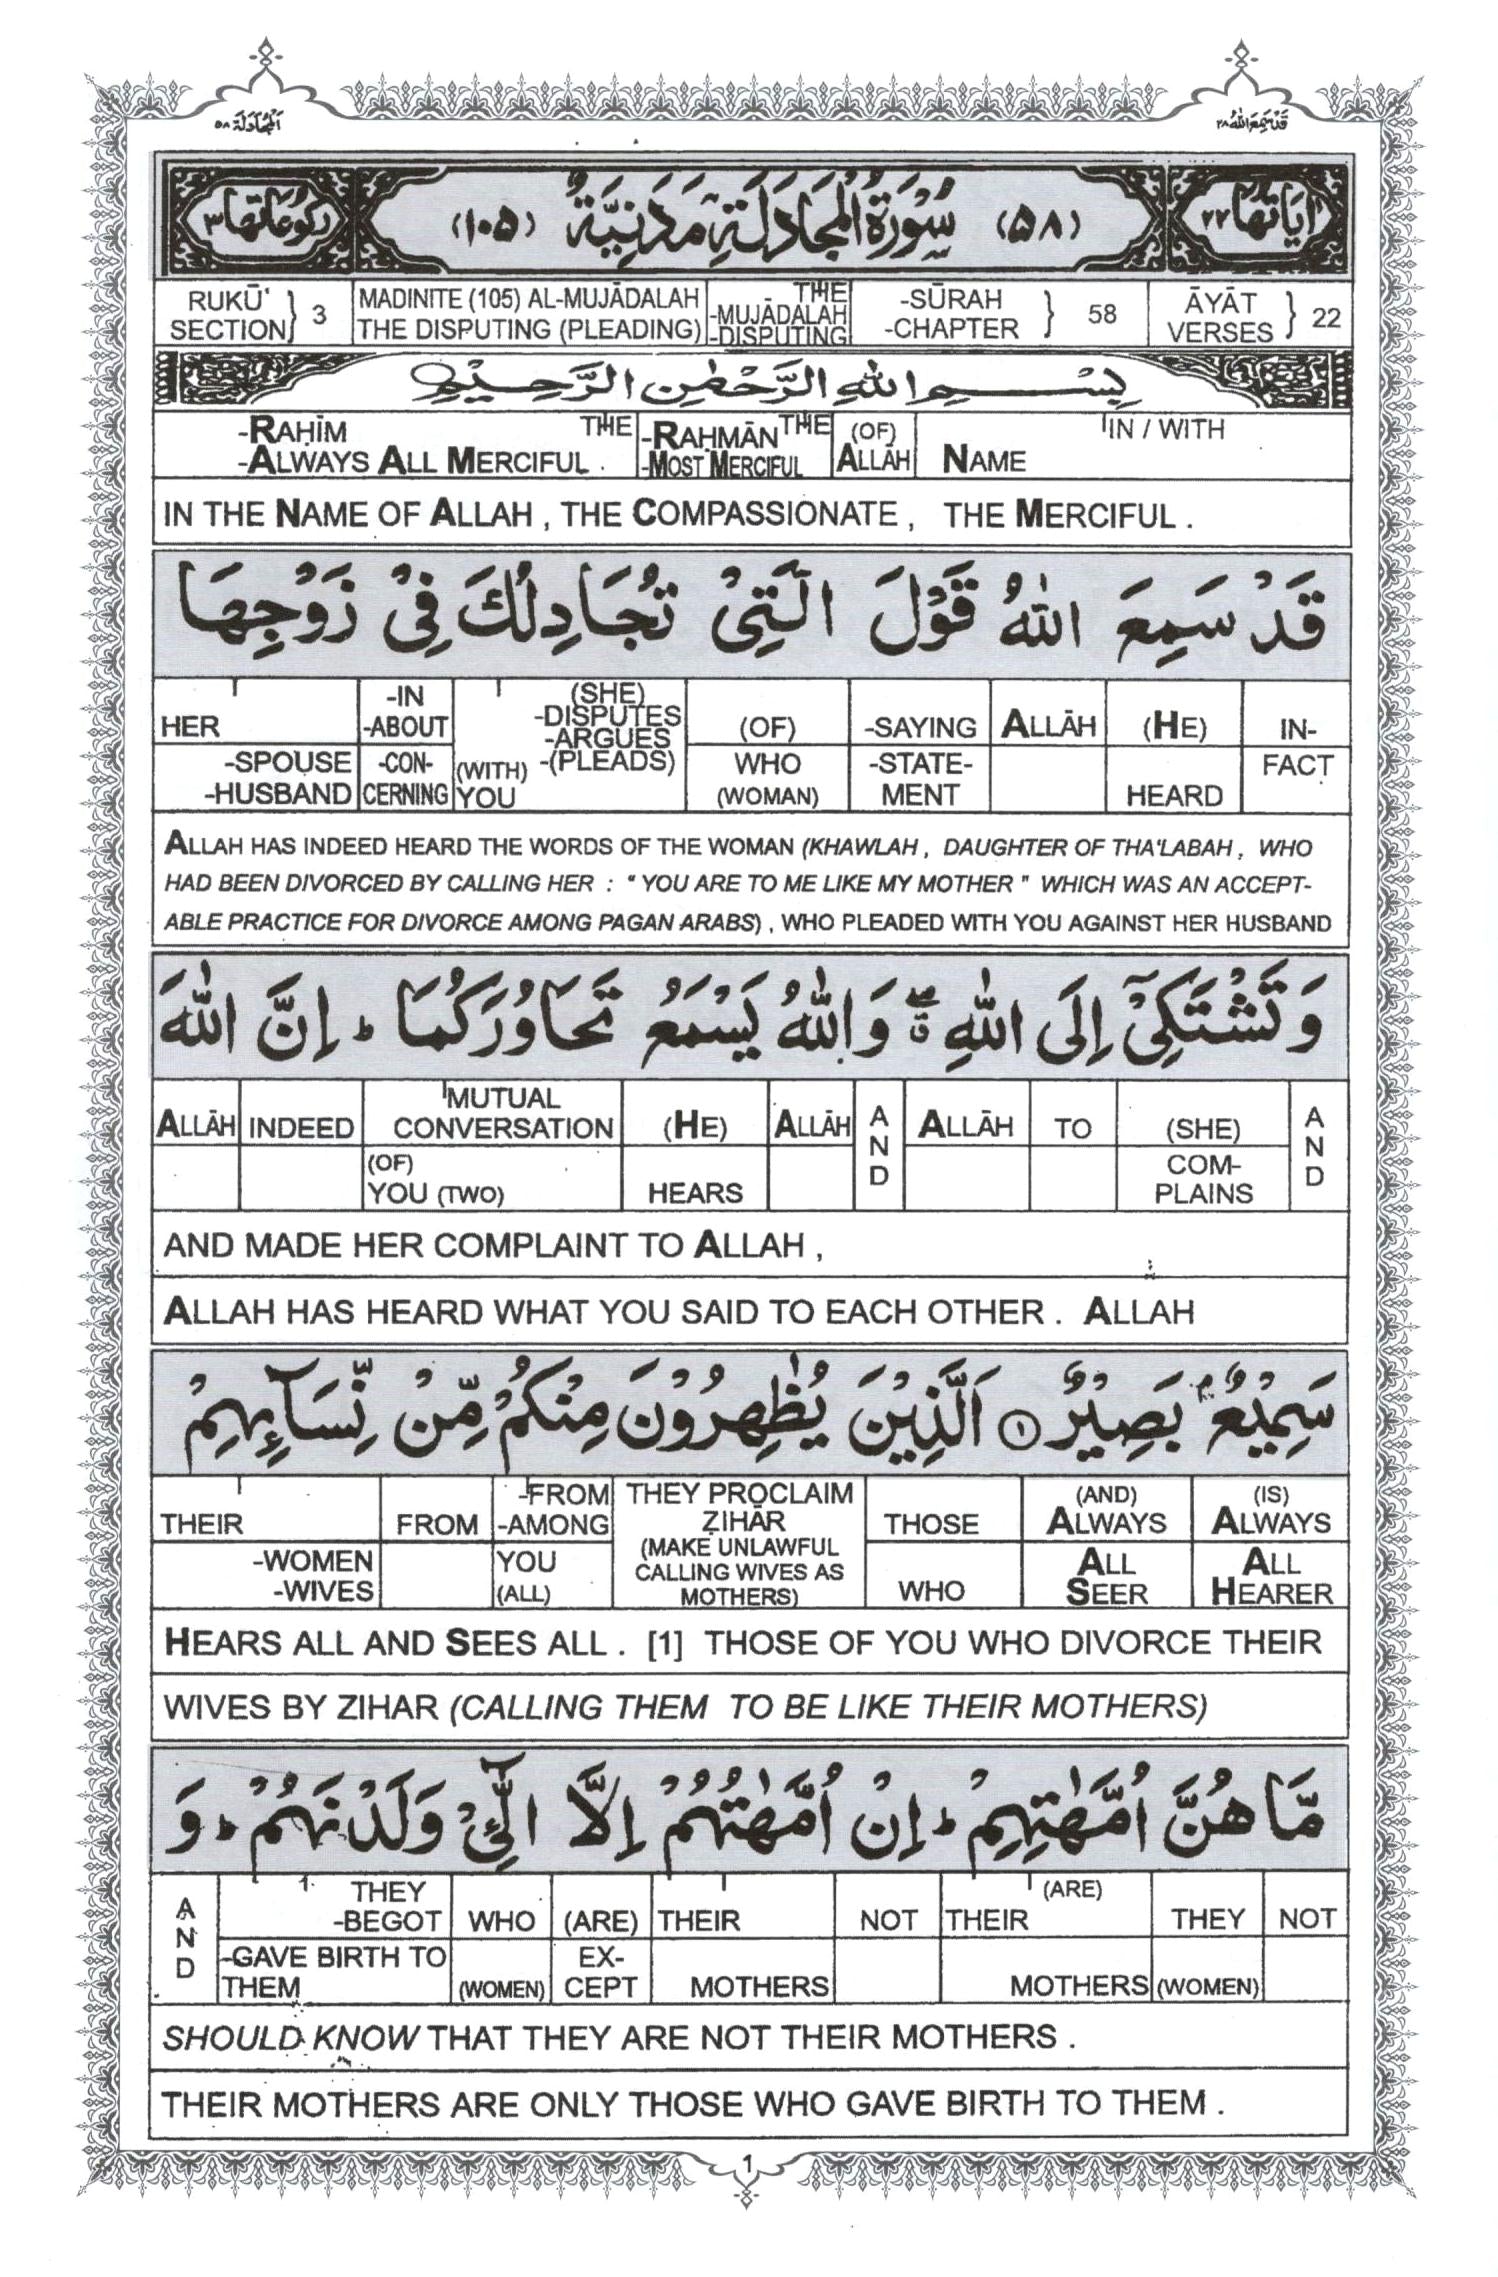 المجادلة ٥٨
قد سمع الله ٢٨
اٰيَاتُهَا ٢٢
(٥٨) سُوْرَةُ الْمُجَادَلَةِ مَدَنِيَّةٌ (١٠٥)
رُكُوْعَاتُهَا ٣
RUKŪ' SECTION } 3
MADINITE (105) AL-MUJĀDALAH THE DISPUTING (PLEADING)
THE -MUJĀDALAH -DISPUTING
-SŪRAH -CHAPTER } 58
ĀYĀT VERSES } 22
بِسْمِ اللّٰهِ الرَّحْمٰنِ الرَّحِيْمِ
-RAḤĪM THE -RAḤMĀN THE (OF) IN / WITH
-ALWAYS ALL MERCIFUL . -MOST MERCIFUL ALLĀH NAME
IN THE NAME OF ALLAH , THE COMPASSIONATE , THE MERCIFUL .
قَدْ سَمِعَ اللّٰهُ قَوْلَ الَّتِيْ تُجَادِلُكَ فِيْ زَوْجِهَا
HER -IN -ABOUT (SHE) -DISPUTES -ARGUES -(PLEADS) (OF) -SAYING ALLĀH (HE) IN-
-SPOUSE -HUSBAND -CON- CERNING (WITH) YOU WHO (WOMAN) -STATE- MENT HEARD FACT
ALLAH HAS INDEED HEARD THE WORDS OF THE WOMAN (KHAWLAH , DAUGHTER OF THA'LABAH , WHO
HAD BEEN DIVORCED BY CALLING HER : " YOU ARE TO ME LIKE MY MOTHER " WHICH WAS AN ACCEPT-
ABLE PRACTICE FOR DIVORCE AMONG PAGAN ARABS) , WHO PLEADED WITH YOU AGAINST HER HUSBAND
وَ تَشْتَكِيْٓ اِلَى اللّٰهِ ۖۗ وَ اللّٰهُ يَسْمَعُ تَحَاوُرَكُمَا ؕ اِنَّ اللّٰهَ
ALLĀH INDEED MUTUAL CONVERSATION (HE) ALLĀH AND ALLĀH TO (SHE) AND
(OF) YOU (TWO) HEARS COM- PLAINS
AND MADE HER COMPLAINT TO ALLAH ,
ALLAH HAS HEARD WHAT YOU SAID TO EACH OTHER . ALLAH
سَمِيْعٌۢ بَصِيْرٌ ١ اَلَّذِيْنَ يُظٰهِرُوْنَ مِنْكُمْ مِّنْ نِّسَآئِهِمْ
THEIR FROM -FROM -AMONG THEY PROCLAIM ẒIHĀR THOSE (AND) ALWAYS (IS) ALWAYS
-WOMEN -WIVES YOU (ALL) (MAKE UNLAWFUL CALLING WIVES AS MOTHERS) WHO ALL SEER ALL HEARER
HEARS ALL AND SEES ALL . [1] THOSE OF YOU WHO DIVORCE THEIR
WIVES BY ZIHAR (CALLING THEM TO BE LIKE THEIR MOTHERS)
مَّا هُنَّ اُمَّهٰتِهِمْ ؕ اِنْ اُمَّهٰتُهُمْ اِلَّا الّٰٓئِيْ وَلَدْنَهُمْ ؕ وَ
AND THEY -BEGOT WHO (ARE) THEIR NOT THEIR (ARE) THEY NOT
-GAVE BIRTH TO THEM (WOMEN) EX- CEPT MOTHERS MOTHERS (WOMEN)
SHOULD KNOW THAT THEY ARE NOT THEIR MOTHERS .
THEIR MOTHERS ARE ONLY THOSE WHO GAVE BIRTH TO THEM .
1